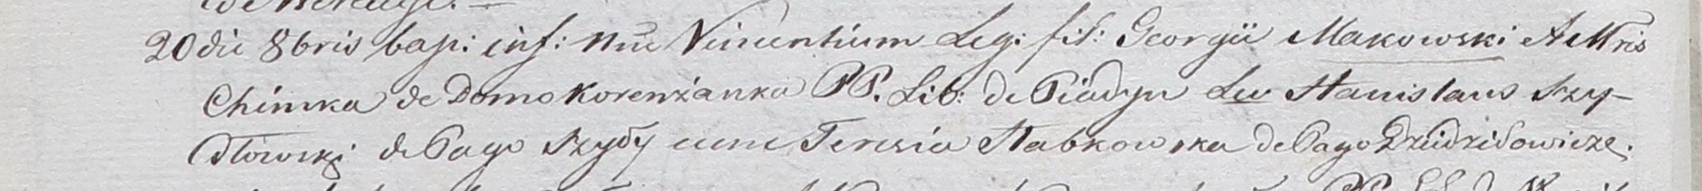 20 die 8bris bap: inf: nne Vincentium Leg: fil: Georgii Makowski A Mris
Chimka de Domo Korenżanka PP. Lib: de Piadyn Lw Stanislaus Szy-
dłowski de Pago Szyły cum Teresia Stabkowska de Pago Dziedziłowicze.